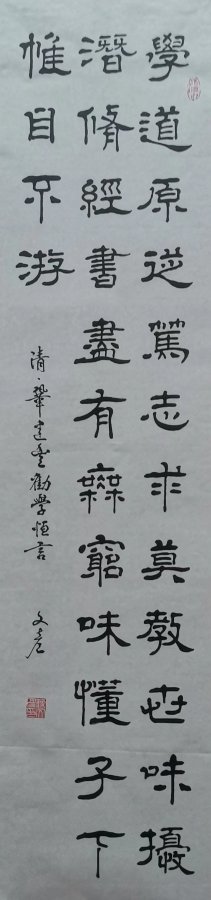 學道原從篤志求莫教世味擾
潛脩經書盡有無窮味懂子下
帷目不游
清·鞏建豐勸學恒言
文彦